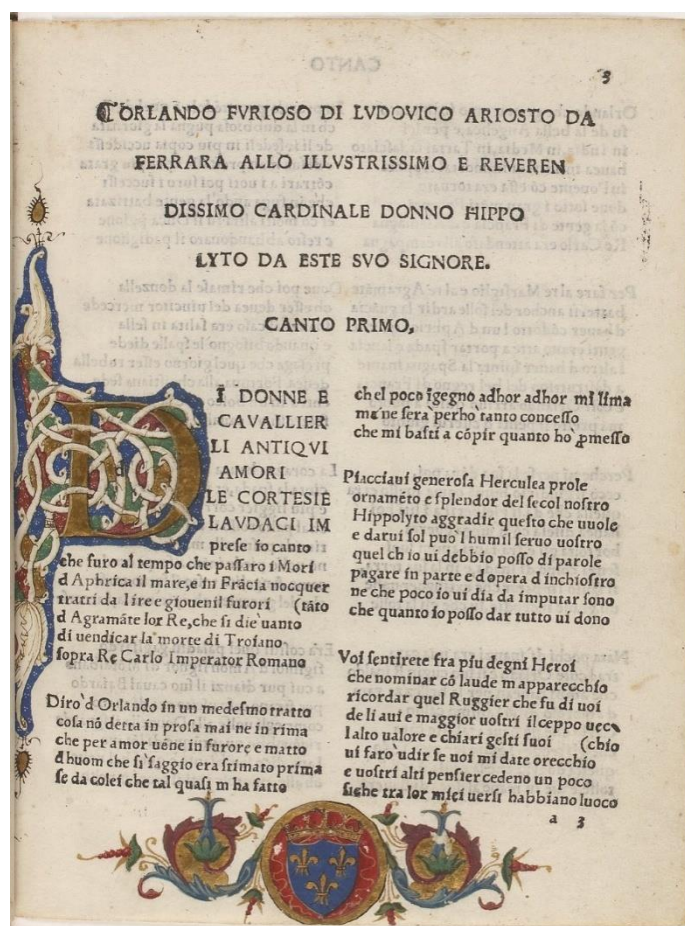 3
ORLANDO FVRIOSO DI LVDOVICO ARIOSTO DA
FERRARA ALLO ILLVSTRISSIMO E REVEREN
DISSIMO CARDINALE DONNO HIPPO
LYTO DA ESTE SVO SIGNORE.
CANTO PRIMO,
DI DONNE E
CAVALLIER
LI ANTIQVI
AMORI
LE CORTESIE
LAVDACI IM
prese io canto
che furo al tempo che paſſaro i Mori
d Aphrica il mare,e in Frācia nocquer
tratti da lire e giouenil furori (tāto
d Agramāte lor Re,che ſi die uanto
di uendicar la morte di Troiano
ſopra Re Carlo Imperator Romano
Diro d Orlando in un medeſmo tratto
coſa nō detta in proſa mai ne in rima
che per amor uēne in furore e matto
d huom che ſi ſaggio era ſtimato prima
ſe da colei che tal quaſi m ha fatto
chel poco īgegno adhor adhor mi lima
me ne ſera perho tanto conceſſo
che mi baſti a cōpir quanto ho ꝓmeſſo
Piacciaui generoſa Herculea prole
ornamēto e ſplendor del ſecol noſtro
Hippolyto aggradir queſto che uuole
e darui ſol puo l humil ſeruo uoſtro
quel ch io ui debbio poſſo di parole
pagare in parte e d opera d inchioſtro
ne che poco io ui dia da imputar ſono
che quanto io poſſo dar tutto ui dono
Voi ſentirete fra piu degni Heroi
che nominar cō laude m apparecchio
ricordar quel Ruggier che fu di uoi
de li aui e maggior uoſtri il ceppo uec
lalto ualore e chiari geſti ſuoi (chio
ui faro udir ſe uoi mi date orecchio
e uoſtri alti penſier cedeno un poco
ſiche tra lor miei uerſi habbiano luoco
a 3